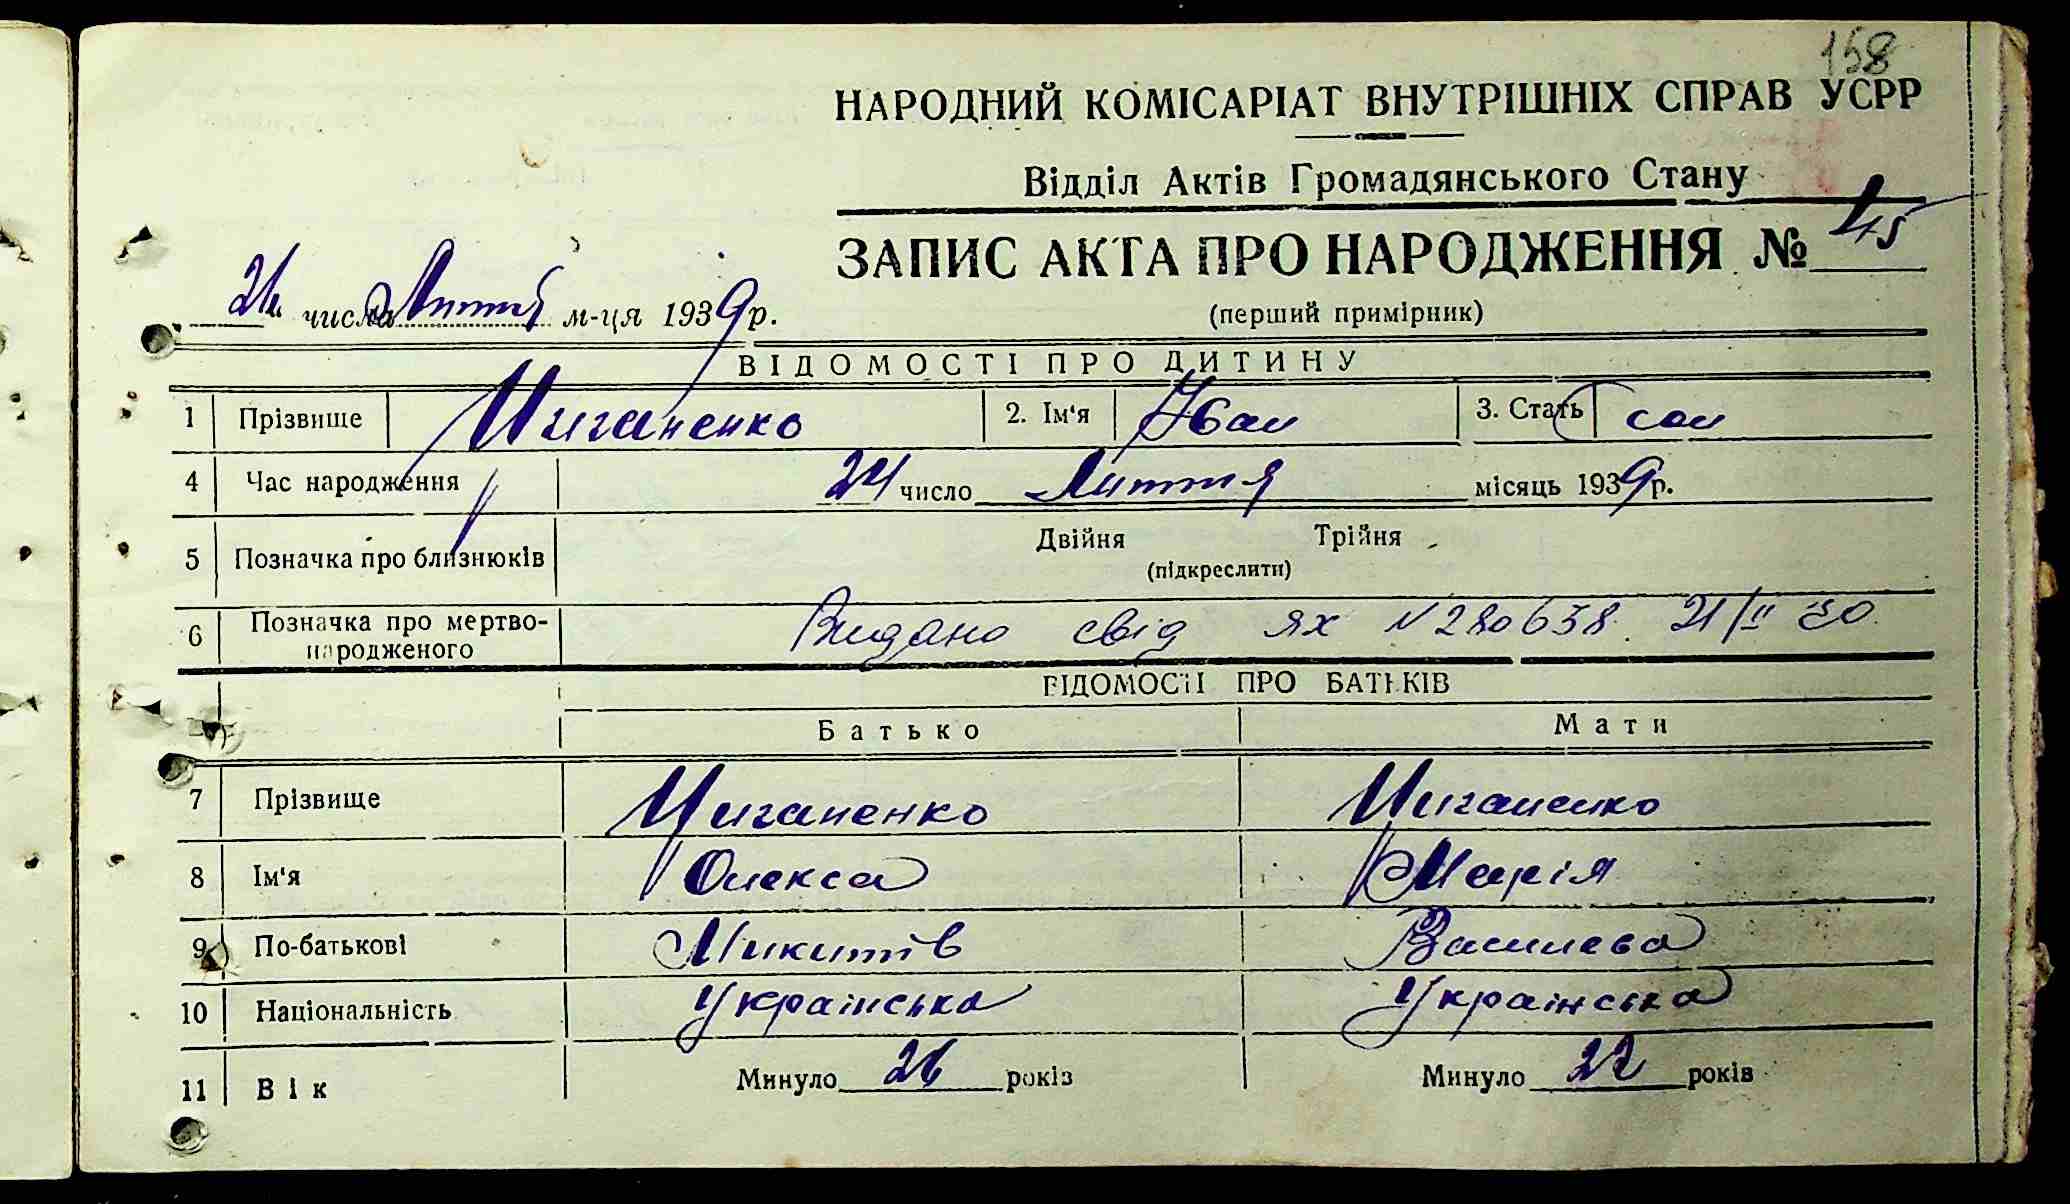 158
НАРОДНИЙ КОМІСАРІАТ ВНУТРІШНІХ СПРАВ УСРР
Відділ Актів Громадянського Стану
ЗАПИС АКТА ПРО НАРОДЖЕННЯ № 45
26 числа Лютня м-ця 1939 р.
(перший примірник)
ВІДОМОСТІ ПРО ДИТИНУ
1 Прізвище Циганенко 2. Ім'я Іван 3. Стать
4 Час народження 24 число Лютня місяць 1939 р.
5 Позначка про близнюків Двійня Трійня
(підкреслити)
6 Позначка про мертво-
народженого Видано свід ЯХ N 280638. 21/II
ВІДОМОСТІ ПРО БАТЬКІВ
Батько Мати
7 Прізвище Циганенко Циганенко
8 Ім'я Олекса Марія
9 По-батькові Микитів Василева
10 Національність Українська Українська
11 Вік Минуло 26 років Минуло 22 років